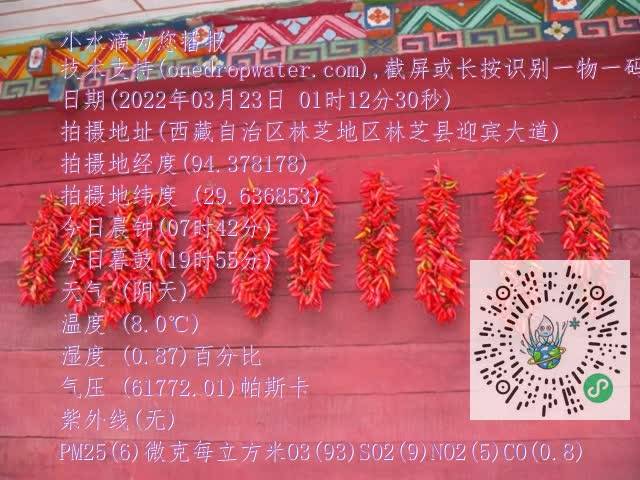 小水滴为您播报
技术支持(onedropwater.com),截屏或长按识别一物一码
日期(2022年03月23日 01时12分30秒)
拍摄地址(西藏自治区林芝地区林芝县迎宾大道)
拍摄地经度(94.378178)
拍摄地纬度 (29.636853)
今日晨钟(07时42分)
今日暮鼓(19时55分)
天气 (阴天)
温度 (8.0℃)
湿度 (0.87)百分比
气压 (61772.01)帕斯卡
紫外线(无)
PM25(6)微克每立方米O3(93)SO2(9)NO2(5)CO(0.8)